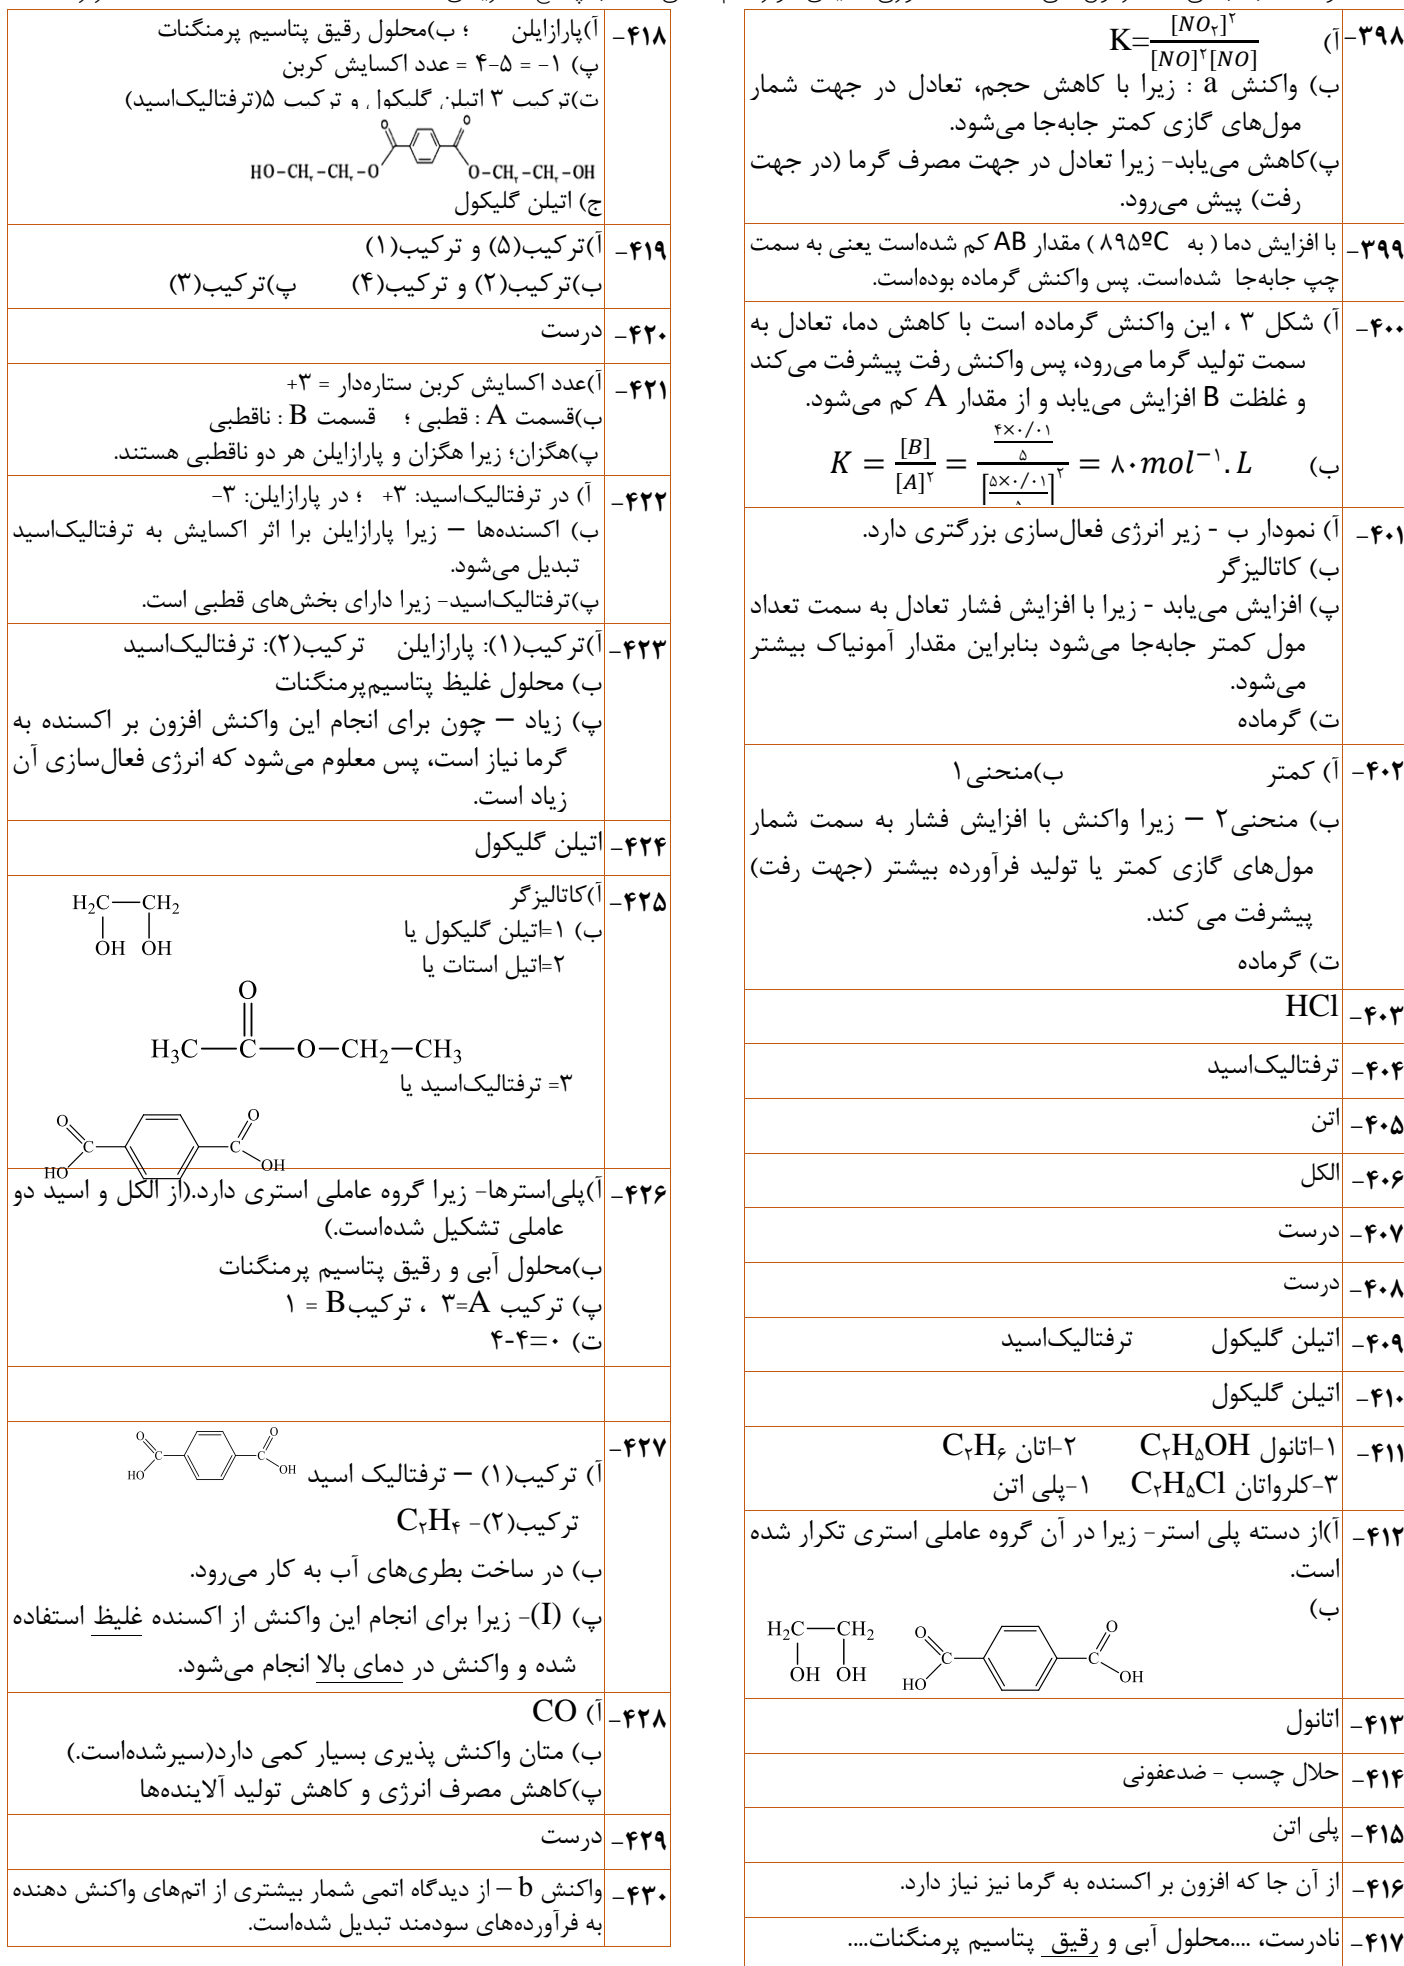 ۳۹۸- آ) K=[NO₂]²/[NO]²[NO]
ب) واکنش a : زیرا با کاهش حجم، تعادل در جهت شمار
مول‌های گازی کمتر جابه‌جا می‌شود.
پ)کاهش می‌یابد- زیرا تعادل در جهت مصرف گرما (در جهت
رفت) پیش می‌رود.
۳۹۹- با افزایش دما ( به ۸۹۵ºC ) مقدار AB کم شده‌است یعنی به سمت
چپ جابه‌جا شده‌است. پس واکنش گرماده بوده‌است.
۴۰۰- آ) شکل ۳ ، این واکنش گرماده است با کاهش دما، تعادل به
سمت تولید گرما می‌رود، پس واکنش رفت پیشرفت می‌کند
و غلظت B افزایش می‌یابد و از مقدار A کم می‌شود.
ب) K = [B]/[A]² = (۴×۰/۰۱/۵)/[۵×۰/۰۱/۵]² = ۸۰mol⁻¹.L
۴۰۱- آ) نمودار ب - زیر انرژی فعال‌سازی بزرگتری دارد.
ب) کاتالیزگر
پ) افزایش می‌یابد - زیرا با افزایش فشار تعادل به سمت تعداد
مول کمتر جابه‌جا می‌شود بنابراین مقدار آمونیاک بیشتر
می‌شود.
ت) گرماده
۴۰۲- آ) کمتر ب)منحنی۱
ب) منحنی۲ – زیرا واکنش با افزایش فشار به سمت شمار
مول‌های گازی کمتر یا تولید فرآورده بیشتر (جهت رفت)
پیشرفت می کند.
ت) گرماده
۴۰۳- HCl
۴۰۴- ترفتالیک‌اسید
۴۰۵- اتن
۴۰۶- الکل
۴۰۷- درست
۴۰۸- درست
۴۰۹- اتیلن گلیکول ترفتالیک‌اسید
۴۱۰- اتیلن گلیکول
۴۱۱- ۱-اتانول C₂H₅OH ۲-اتان C₂H₆
۳-کلرواتان C₂H₅Cl ۱-پلی اتن
۴۱۲- آ)از دسته پلی استر- زیرا در آن گروه عاملی استری تکرار شده
است.
ب)
H₂C—CH₂ O C O
OH OH HO C OH
۴۱۳- اتانول
۴۱۴- حلال چسب - ضدعفونی
۴۱۵- پلی اتن
۴۱۶- از آن جا که افزون بر اکسنده به گرما نیز نیاز دارد.
۴۱۷- نادرست، ....محلول آبی و رقیق پتاسیم پرمنگنات....
۴۱۸- آ)پارازایلن ؛ ب)محلول رقیق پتاسیم پرمنگنات
پ) ۱- = ۵-۴ = عدد اکسایش کربن
ت)ترکیب ۳ اتیلن گلیکول و ترکیب ۵(ترفتالیک‌اسید)
O O
HO-CH₂-CH₂-O O-CH₂-CH₂-OH
ج) اتیلن گلیکول
۴۱۹- آ)ترکیب(۵) و ترکیب(۱)
ب)ترکیب(۲) و ترکیب(۴) پ)ترکیب(۳)
۴۲۰- درست
۴۲۱- آ)عدد اکسایش کربن ستاره‌دار = ۳+
ب)قسمت A : قطبی ؛ قسمت B : ناقطبی
پ)هگزان؛ زیرا هگزان و پارازایلن هر دو ناقطبی هستند.
۴۲۲- آ) در ترفتالیک‌اسید: ۳+ ؛ در پارازایلن: ۳-
ب) اکسنده‌ها – زیرا پارازایلن برا اثر اکسایش به ترفتالیک‌اسید
تبدیل می‌شود.
پ)ترفتالیک‌اسید- زیرا دارای بخش‌های قطبی است.
۴۲۳- آ)ترکیب(۱): پارازایلن ترکیب(۲): ترفتالیک‌اسید
ب) محلول غلیظ پتاسیم‌پرمنگنات
پ) زیاد – چون برای انجام این واکنش افزون بر اکسنده به
گرما نیاز است، پس معلوم می‌شود که انرژی فعال‌سازی آن
زیاد است.
۴۲۴- اتیلن گلیکول
۴۲۵- آ)کاتالیزگر
ب) ۱=اتیلن گلیکول یا H₂C—CH₂
OH OH
۲=اتیل استات یا
O
H₃C—C—O—CH₂—CH₃
۳= ترفتالیک‌اسید یا
O C C O
HO OH
۴۲۶- آ)پلی‌استرها- زیرا گروه عاملی استری دارد.(از الکل و اسید دو
عاملی تشکیل شده‌است.)
ب)محلول آبی و رقیق پتاسیم پرمنگنات
پ) ترکیب A=۳ ، ترکیب B = ۱
ت) ۴-۴=۰
۴۲۷- آ) ترکیب(۱) – ترفتالیک اسید O C C O HO OH
ترکیب(۲)- C₂H₄
ب) در ساخت بطری‌های آب به کار می‌رود.
پ) (I)- زیرا برای انجام این واکنش از اکسنده غلیظ استفاده
شده و واکنش در دمای بالا انجام می‌شود.
۴۲۸- آ) CO
ب) متان واکنش پذیری بسیار کمی دارد(سیرشده‌است.)
پ)کاهش مصرف انرژی و کاهش تولید آلاینده‌ها
۴۲۹- درست
۴۳۰- واکنش b – از دیدگاه اتمی شمار بیشتری از اتم‌های واکنش دهنده
به فرآورده‌های سودمند تبدیل شده‌است.